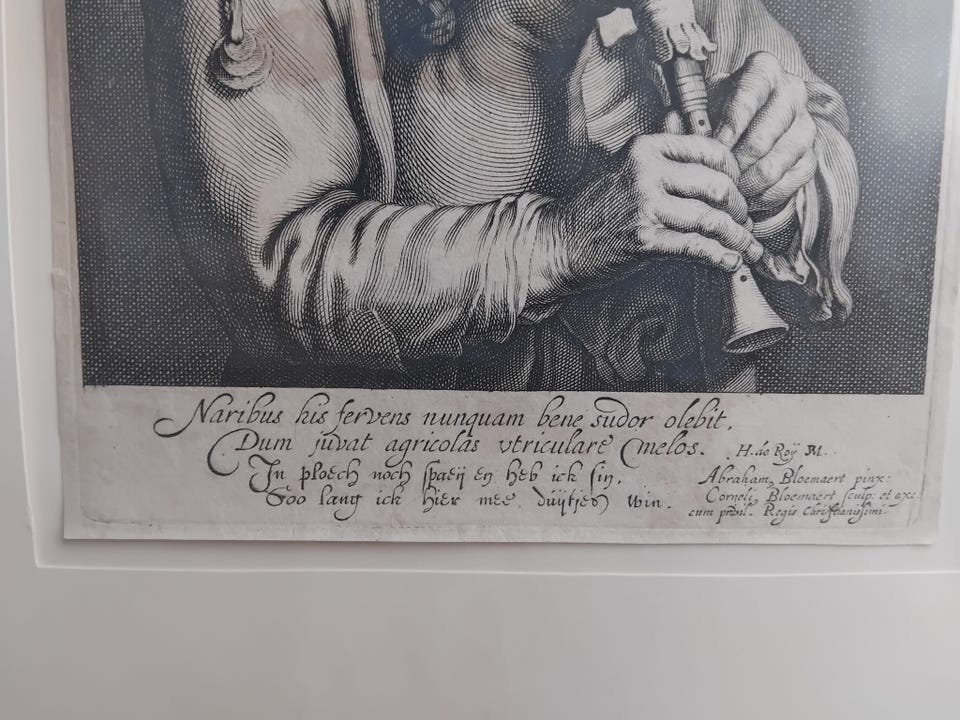 Naribus his fervens nunquam bene sudor olebit,
Dum juvat agricolas utriculare melos.
H. de Roÿ M.
In ploech noch spaeÿ en heb ick sin,
Soo lang ick hier mee duÿtjes win.
Abraham Bloemaert pinx:
Corneli, Bloemaert sculp: et exc:
cum privil. Regis Christianissimi